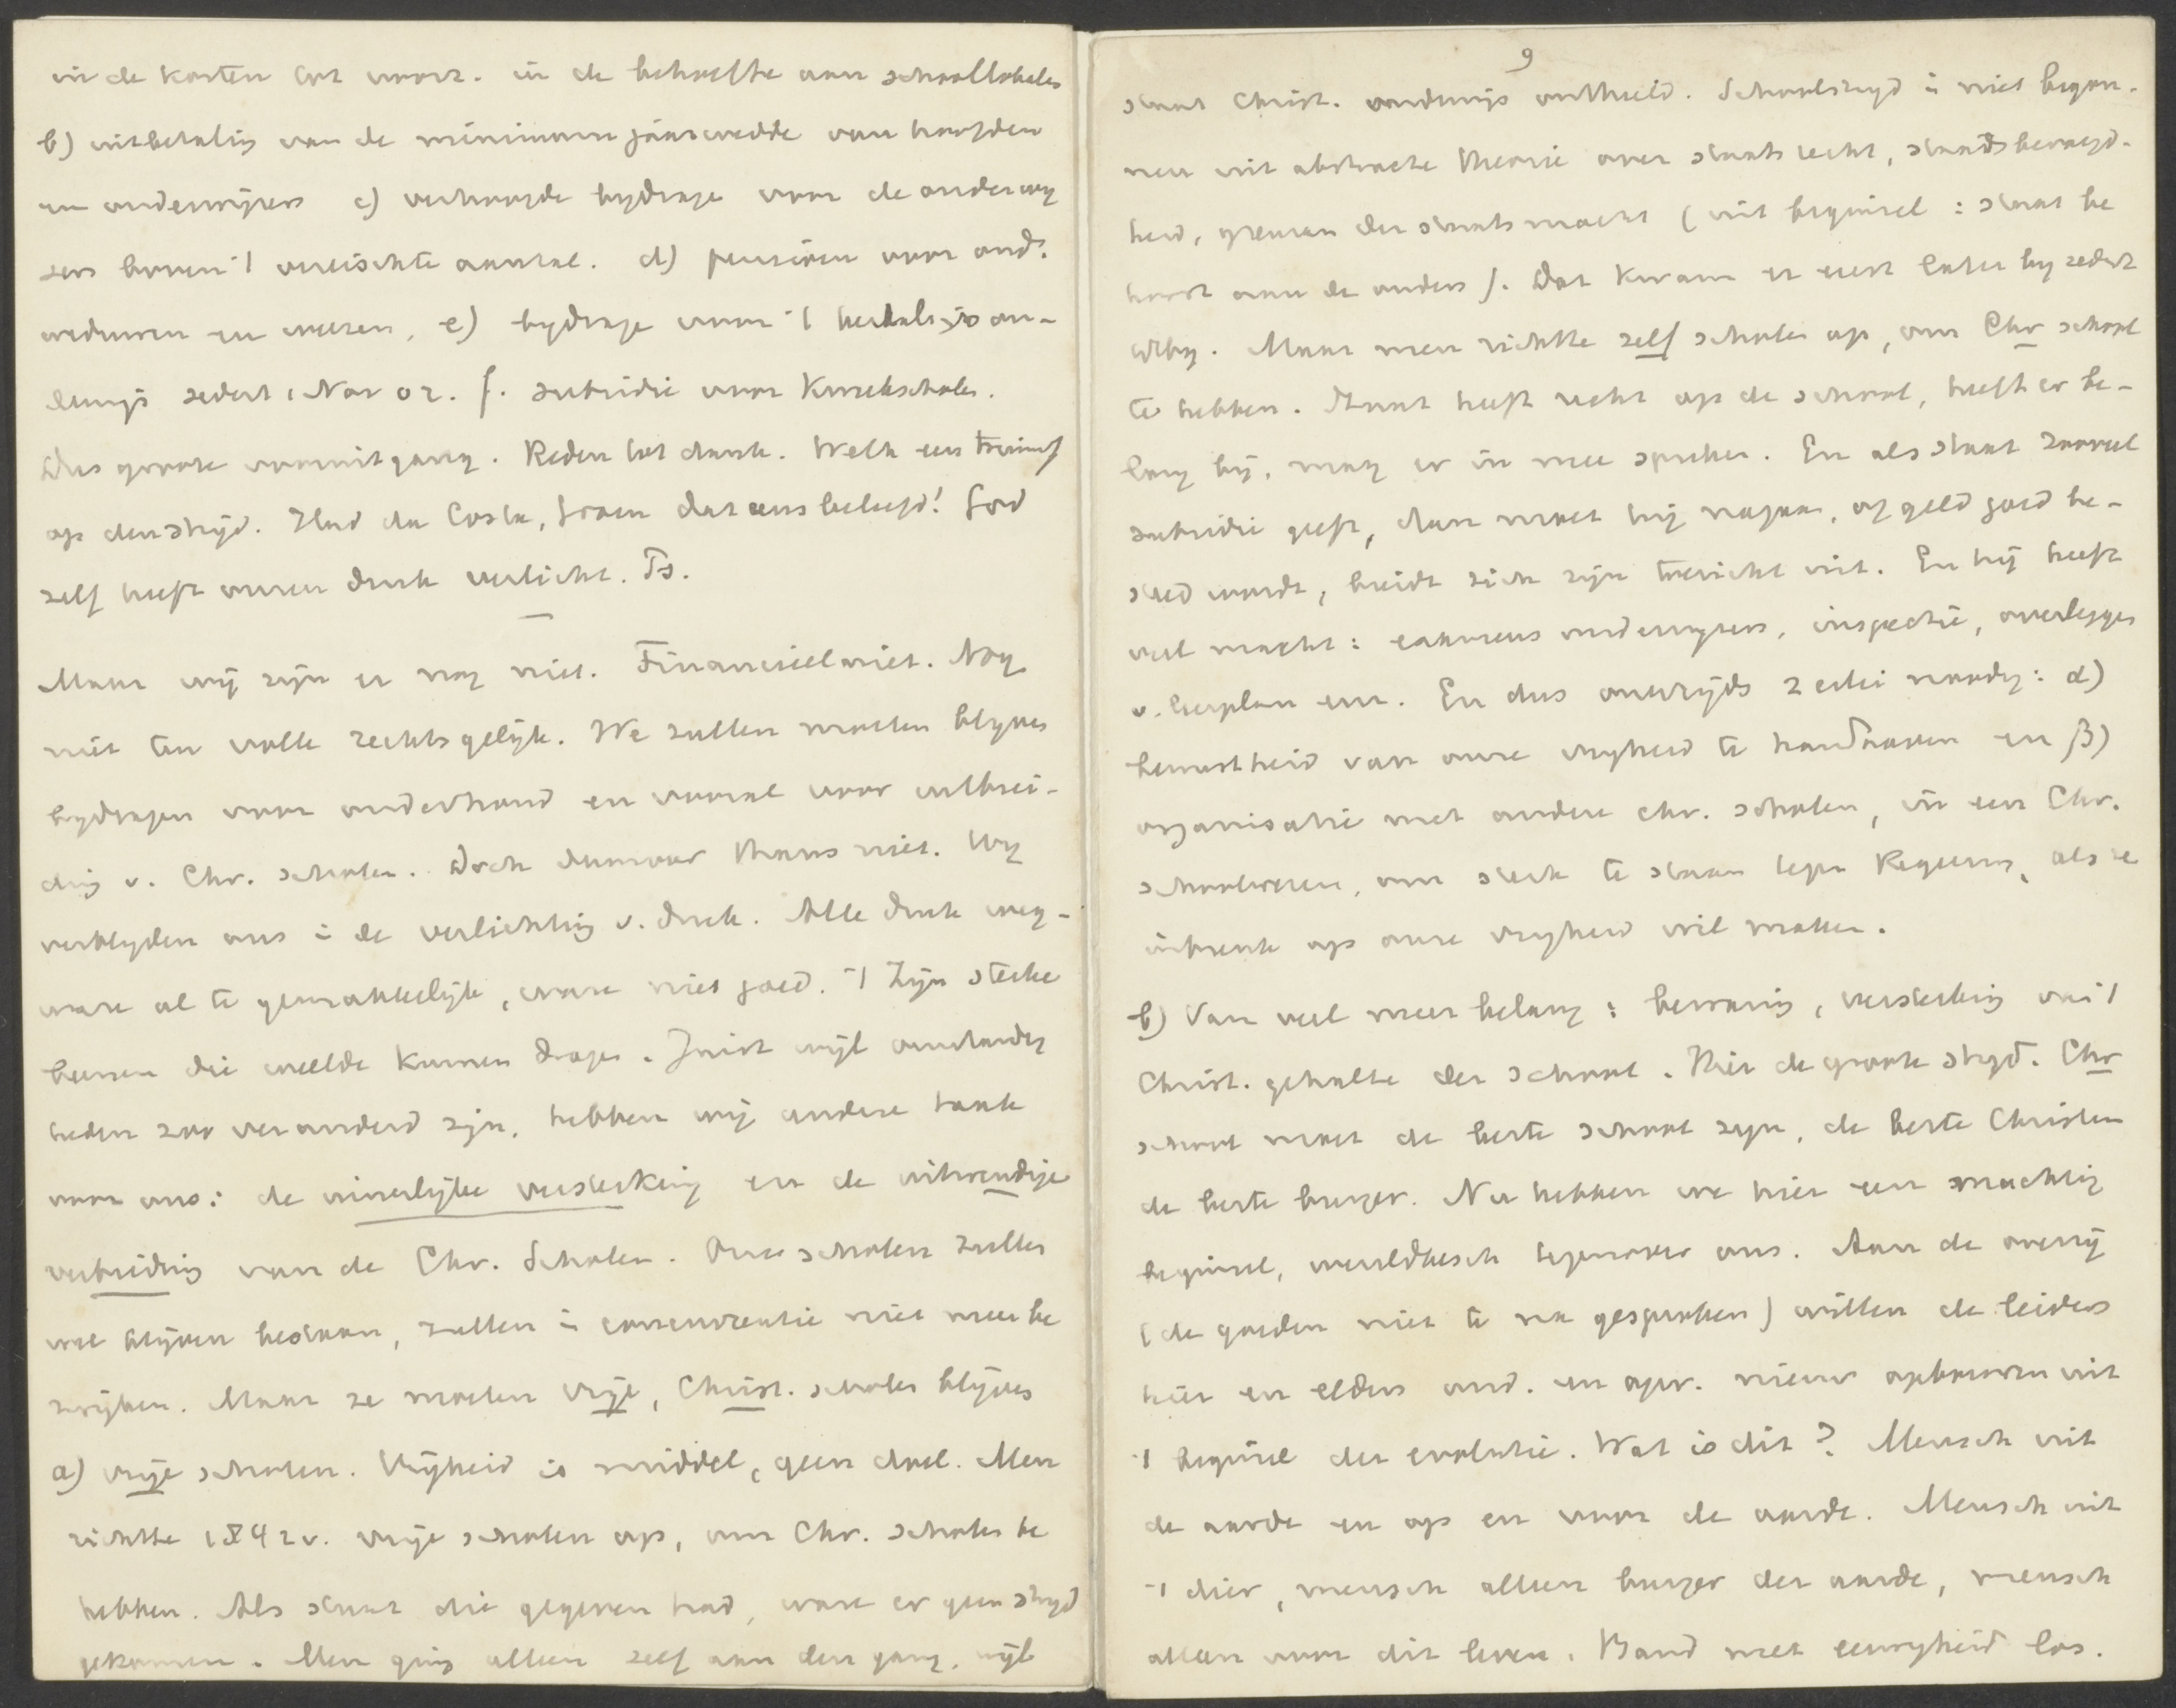 in de kosten tot voorz. in de behoefte aan schoollokalen
b) uitbetaling van de minimum jaarwedde van hoofden
en onderwijzers c) verhoogde bijdrage voor de onderwij
zers boven 't vereischte aantal. d) pensioen voor ond.
weduwen en weezen, e) bijdrage voor 't herhalings on-
derwijs sedert 1 Nov 02. f. subsidie voor kweekscholen.
Dus groote vooruitgang. Reden tot dank. Welk een triumf
op den strijd. Had da Costa, Groen dat eens beleefd! God
zelf heeft onzen druk verlicht. Ps.
Maar wij zijn er nog niet. Financieel niet. Nog
niet ten volle rechtsgelijk. We zullen moeten blijven
bijdragen voor onderhoud en vooral voor uitbrei-
ding v. Chr. scholen. Doch daarover thans niet. Wij
verblijden ons in de verlichting v. druk. Alle druk weg-
ware al te gemakkelijk, ware niet goed. 't Zijn sterke
beenen die weelde kunnen dragen. Juist wijl omstandig
heden zoo veranderd zijn, hebben wij andere taak
voor ons: de innerlijke versterking en de uitwendige
verbreiding van de Chr. Scholen. Onze scholen zullen
wel blijven bestaan, zullen in concurrentie niet meer be
zwijken. Maar ze moeten vrije, Christ. scholen blijven
a) vrije scholen. Vrijheid is middel, geen doel. Men
richtte 1842 v. vrije scholen op, om Chr. scholen te
hebben. Als staat die gegeven had, ware er geen strijd
gekomen. Men ging alleen zelf aan den gang, wijl
9
staat Christ. onderwijs onthield. Schoolstrijd is niet begon-
nen uit abstracte theorie over staatsrecht, staatsbevoegd-
heid, grenzen der staatsmacht (uit beginsel: staat be
hoort aan de ouders). Dat kwam er eerst later bij zedert
. Maar men richtte zelf scholen op, om Chr school
te hebben. Staat heeft recht op de school, heeft er be-
lang bij, mag er in mee spreken. En als staat zooveel
subsidie geeft, dan moet hij nagaan, of geld goed be-
steed wordt, breidt zich zijn toezicht uit. En hij heeft
veel macht: examens onderwijzers, inspectie, overleggen
v. leerplan enz. En dus onzerzijds 2 erlei noodig: α)
bewustheid van onze vrijheid te handhaven en β)
organisatie met andere chr. scholen, in een Chr.
schoolwezen, om sterk te staan tegen Regeering, als ze
inbreuk op onze vrijheid wil maken.
b) Van veel meer belang: bewaring, versterking van 't
Christ. gehalte der school. Hier de groote strijd. Chr
school moet de beste school zijn, de beste Christen
de beste burger. Nu hebben we hier een machtig
beginsel, wereldbesch tegenover ons. Aan de overzij
(de goeden niet te na gesproken) willen de leiders
hier en elders ond. en opv. nieuw opbouwen uit
't beginsel der evolutie. Wat is dit? Mensch uit
de aarde en op en voor de aarde. Mensch uit
't dier, mensch alleen burger der aarde, mensch
alleen voor dit leven. Band met eeuwigheid los.